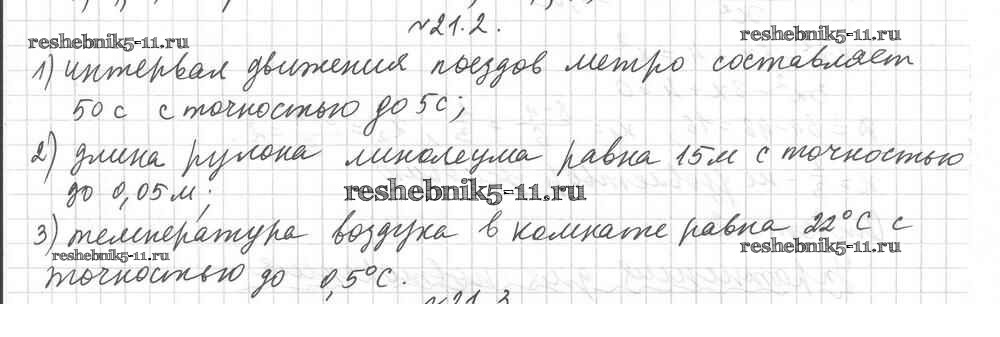 №21.2.
reshebnik5-11.ru
reshebnik5-11.ru
1) интервал движения поездов метро составляет
50 с с точностью до 5с;
2) длина рулона линолеума равна 15м с точностью
до 0,05 м;
reshebnik5-11.ru
3) температура воздуха в комнате равна 22°С с
reshebnik5-11.ru
reshebnik5-11.ru
точностью до 0,5°С.
№21.3